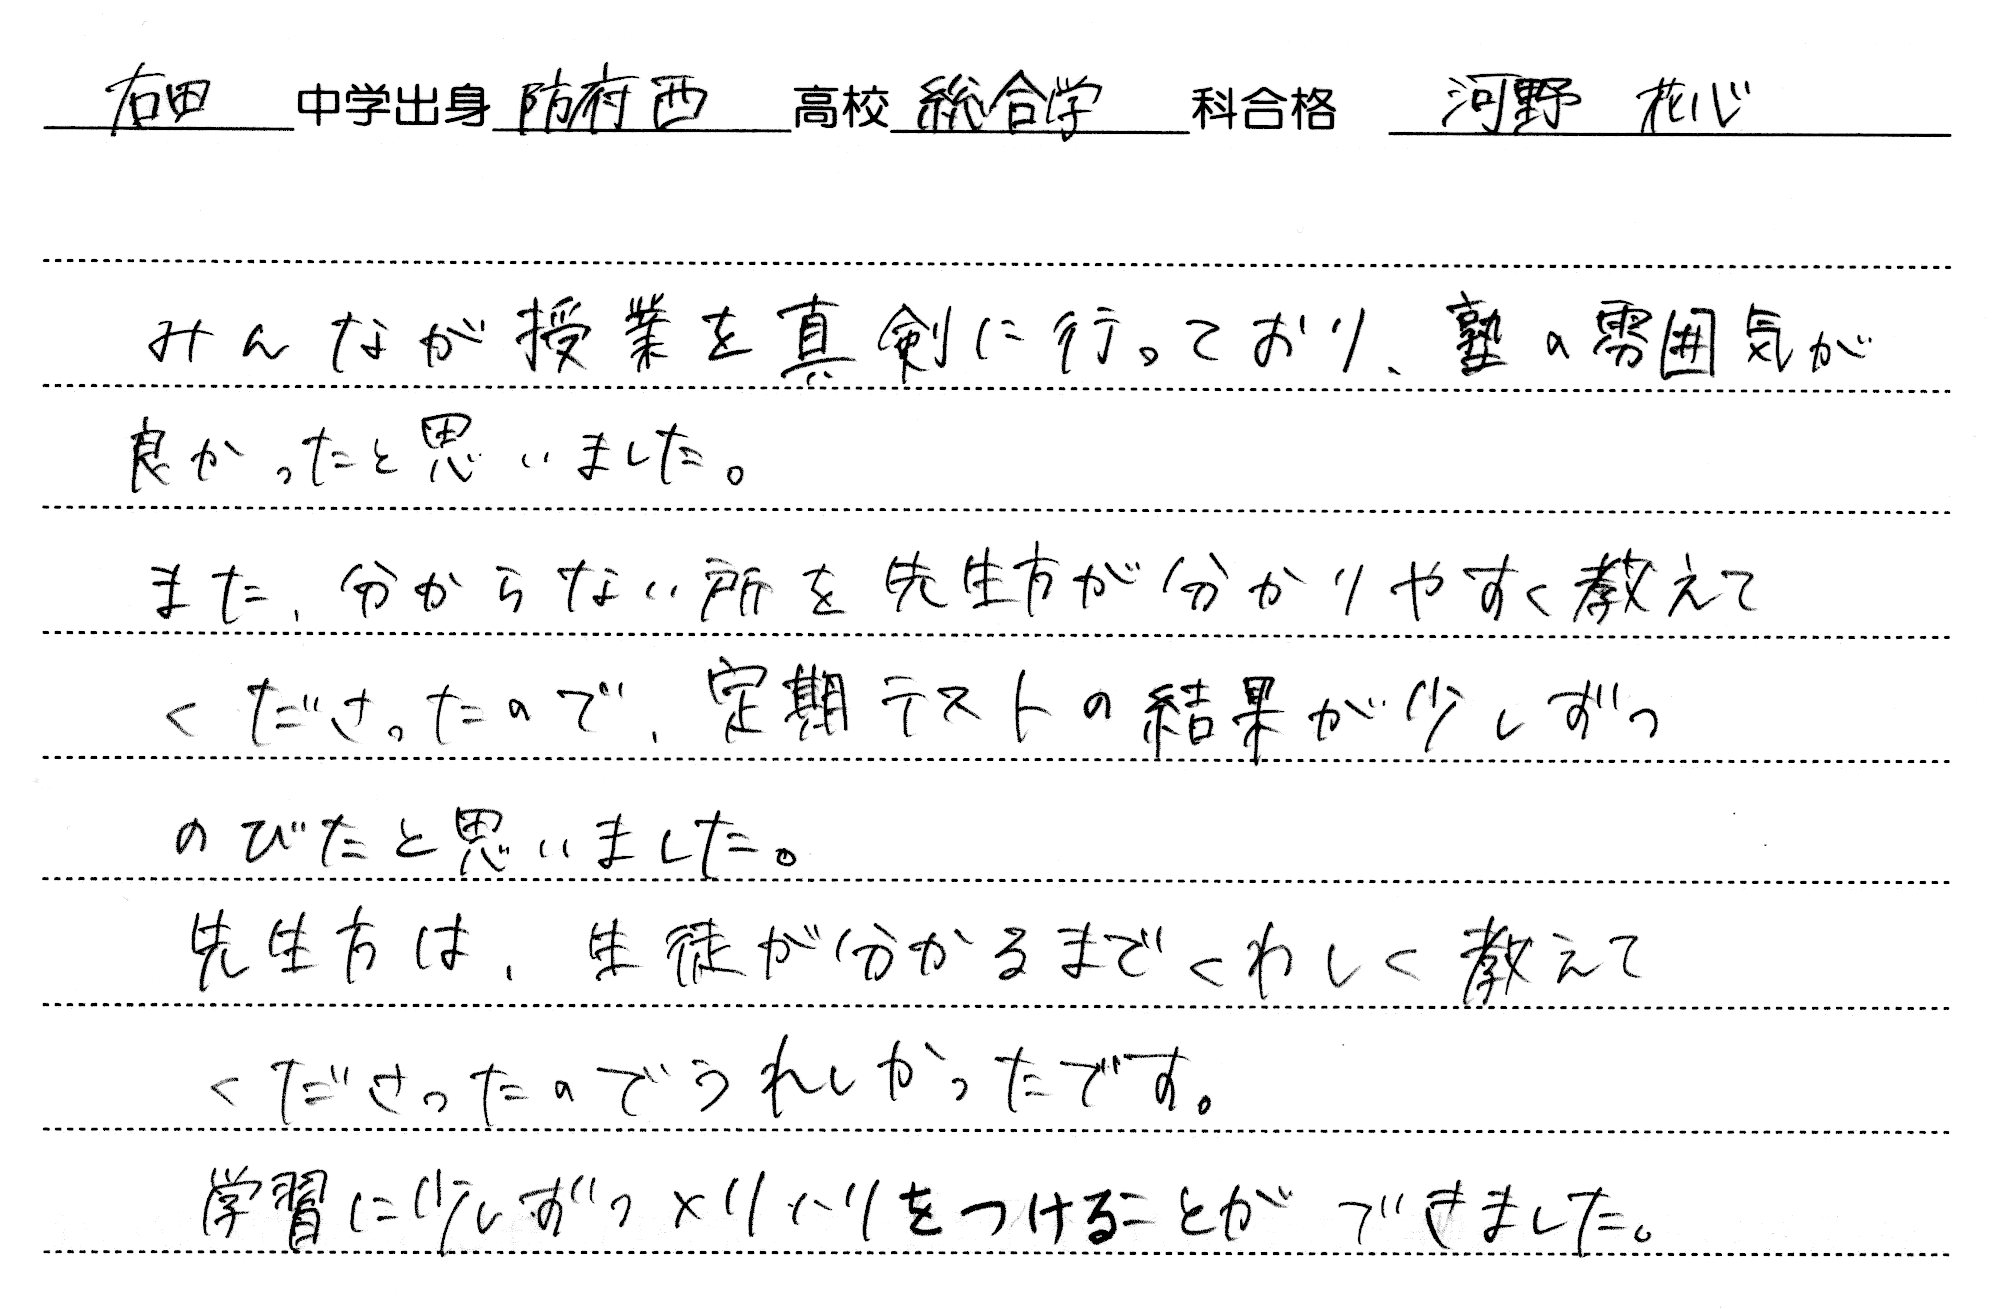 右田 中学出身 防府西 高校 総合学 科合格 河野 花心
みんなが授業を真剣に行っており、塾の雰囲気が
良かったと思いました。
また、分からない所を先生方が分かりやすく教えて
くださったので、定期テストの結果が少しずつ
のびたと思いました。
先生方は、生徒が分かるまでくわしく教えて
くださったのでうれしかったです。
学習に少しずつメリハリをつけることができました。